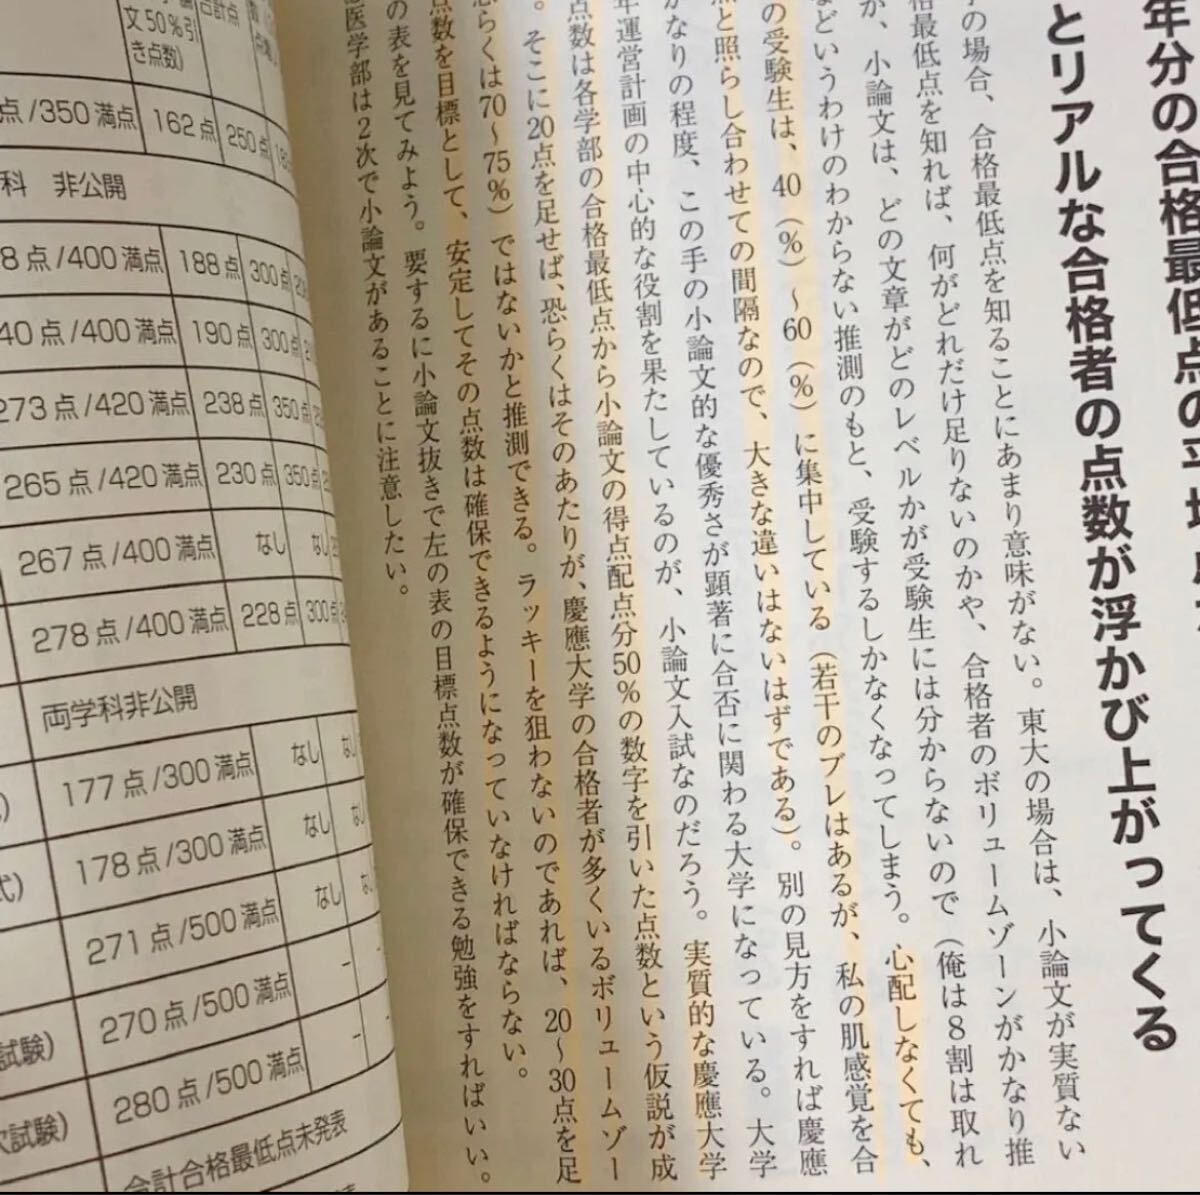 年分の合格最低点の平
とリアルな合格者の点数が浮かび上がってくる
の場合、合格最低点を知ることにあまり意味がない。東大の場合は、小論文が実質ない
格最低点を知れば、何がどれだけ足りないのかや、合格者のボリュームゾーンがかなり推
が、小論文は、どの文章がどのレベルかが受験生には分からないので（俺は８割は取れ
などというわけのわからない推測のもと、受験するしかなくなってしまう。心配しなくても、
の受験生は、40（％）～60（％）に集中している（若干のブレはあるが、私の肌感覚を合
点と照らし合わせての間隔なので、大きな違いはないはずである）。別の見方をすれば慶應
かなりの程度、この手の小論文的な優秀さが顕著に合否に関わる大学になっている。大学
年運営計画の中心的な役割を果たしているのが、小論文入試なのだろう。実質的な慶應大学
点数は各学部の合格最低点から小論文の得点配点分50％の数字を引いた点数という仮説が成
。そこに20点を足せば、恐らくはそのあたりが、慶應大学の合格者が多くいるボリュームゾー
恐らくは70～75％）ではないかと推測できる。ラッキーを狙わないのであれば、20～30点を足
点数を目標として、安定してその点数は確保できるようになっていなければならない。
の表を見てみよう。要するに小論文抜きで左の表の目標点数が確保できる勉強をすればいい。
医学部は２次で小論文があることに注意したい。
文50％引
き点数)
合計点
点/350満点 162点 250点
科 非公開
8点/400満点 188点 300点
40点/400満点 190点 300点
273点/420満点 238点 350点
265点/420満点 230点 350点
267点/400満点 なし なし
278点/400満点 228点 300点
両学科非公開
177点/300満点 なし なし
178点/300満点 なし なし
271点/500満点 なし
試験) 270点/500満点 -
次試験) 280点/500満点 -
合計合格最低点未発表